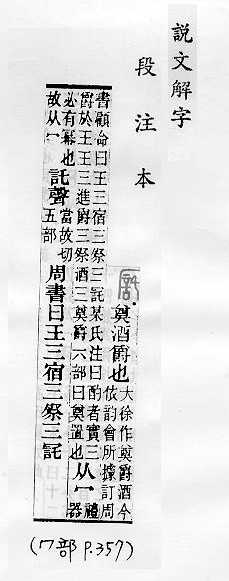 說文解字
段注本
奠酒爵也大徐作奠爵酒今
依韵會所據訂周
書顧命曰王三宿三祭三詫某氏注曰酌者實三
爵於王王三進爵三祭酒三奠爵丌部曰奠置也从冖禮器
必有冪也
故从冖託聲當故切
五部周書曰王三宿三祭三託
(冖部 P.357)